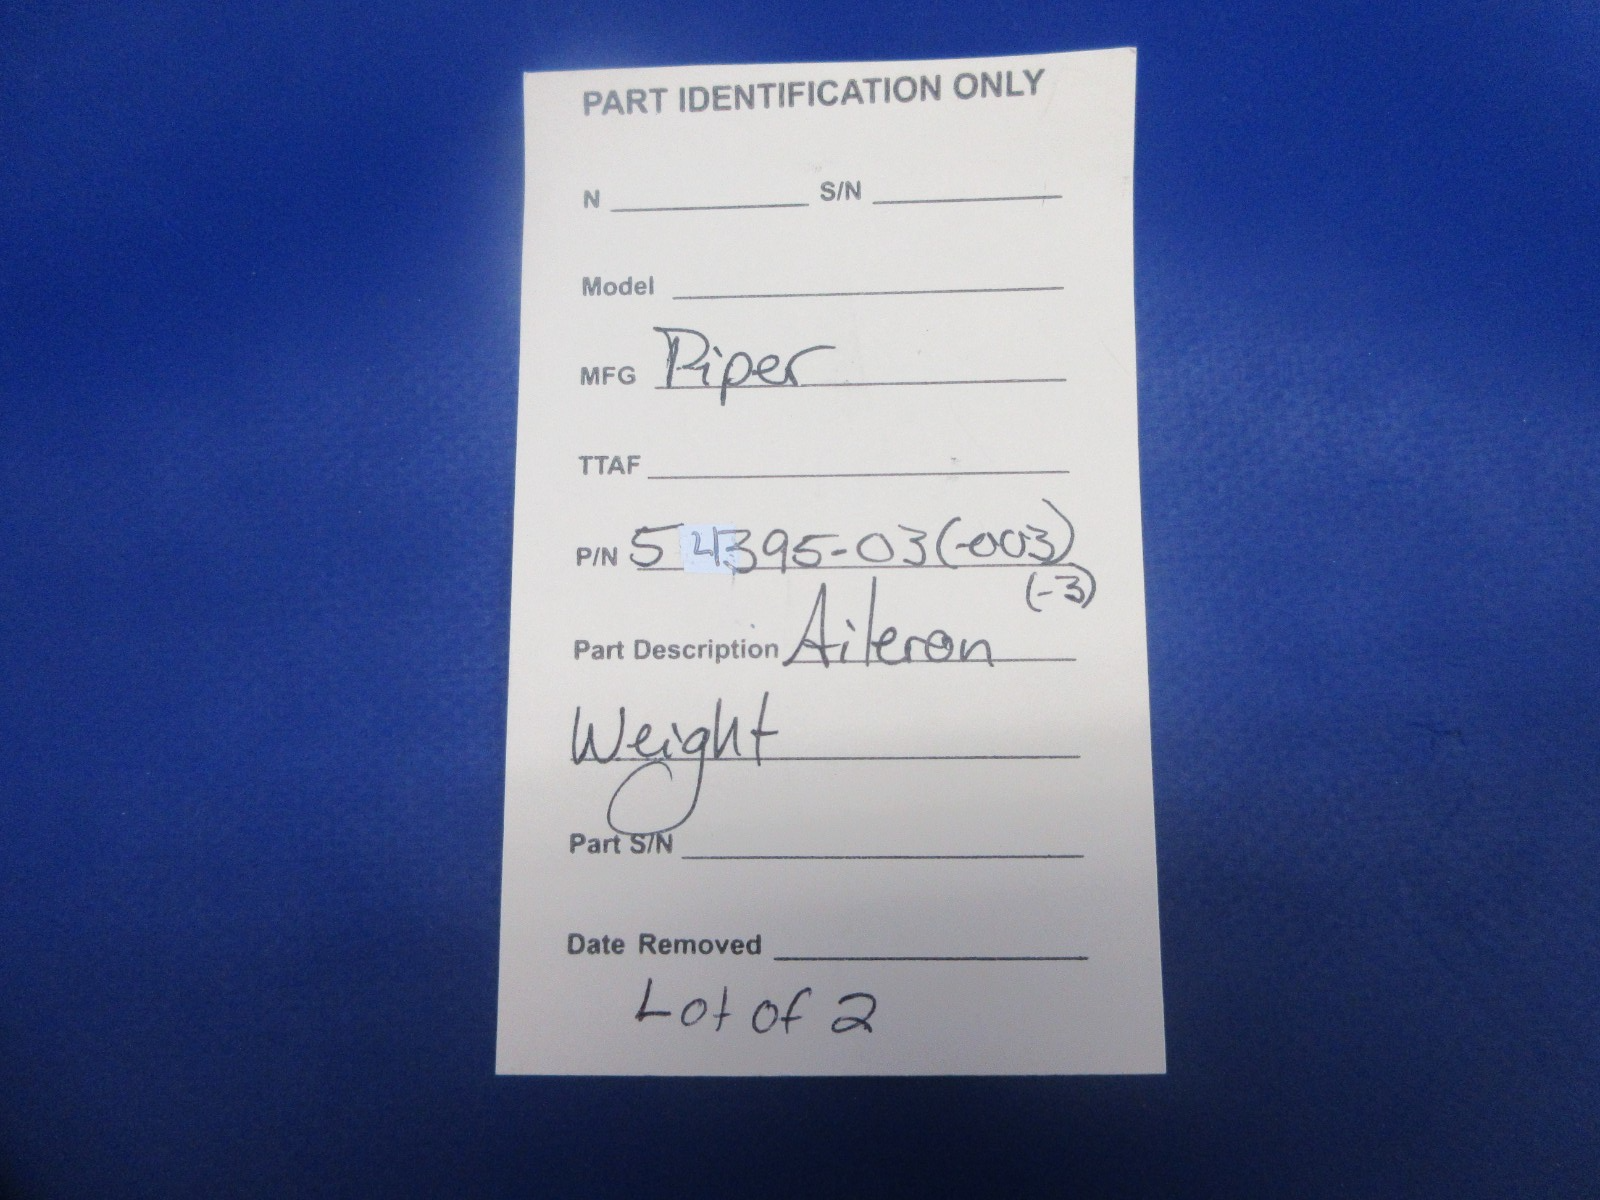 PART IDENTIFICATION ONLY
N S/N
Model
MFG Piper
TTAF
P/N 54395-03(-003)
(-3)
Part Description Aileron
Weight
Part S/N
Date Removed
Lot of 2